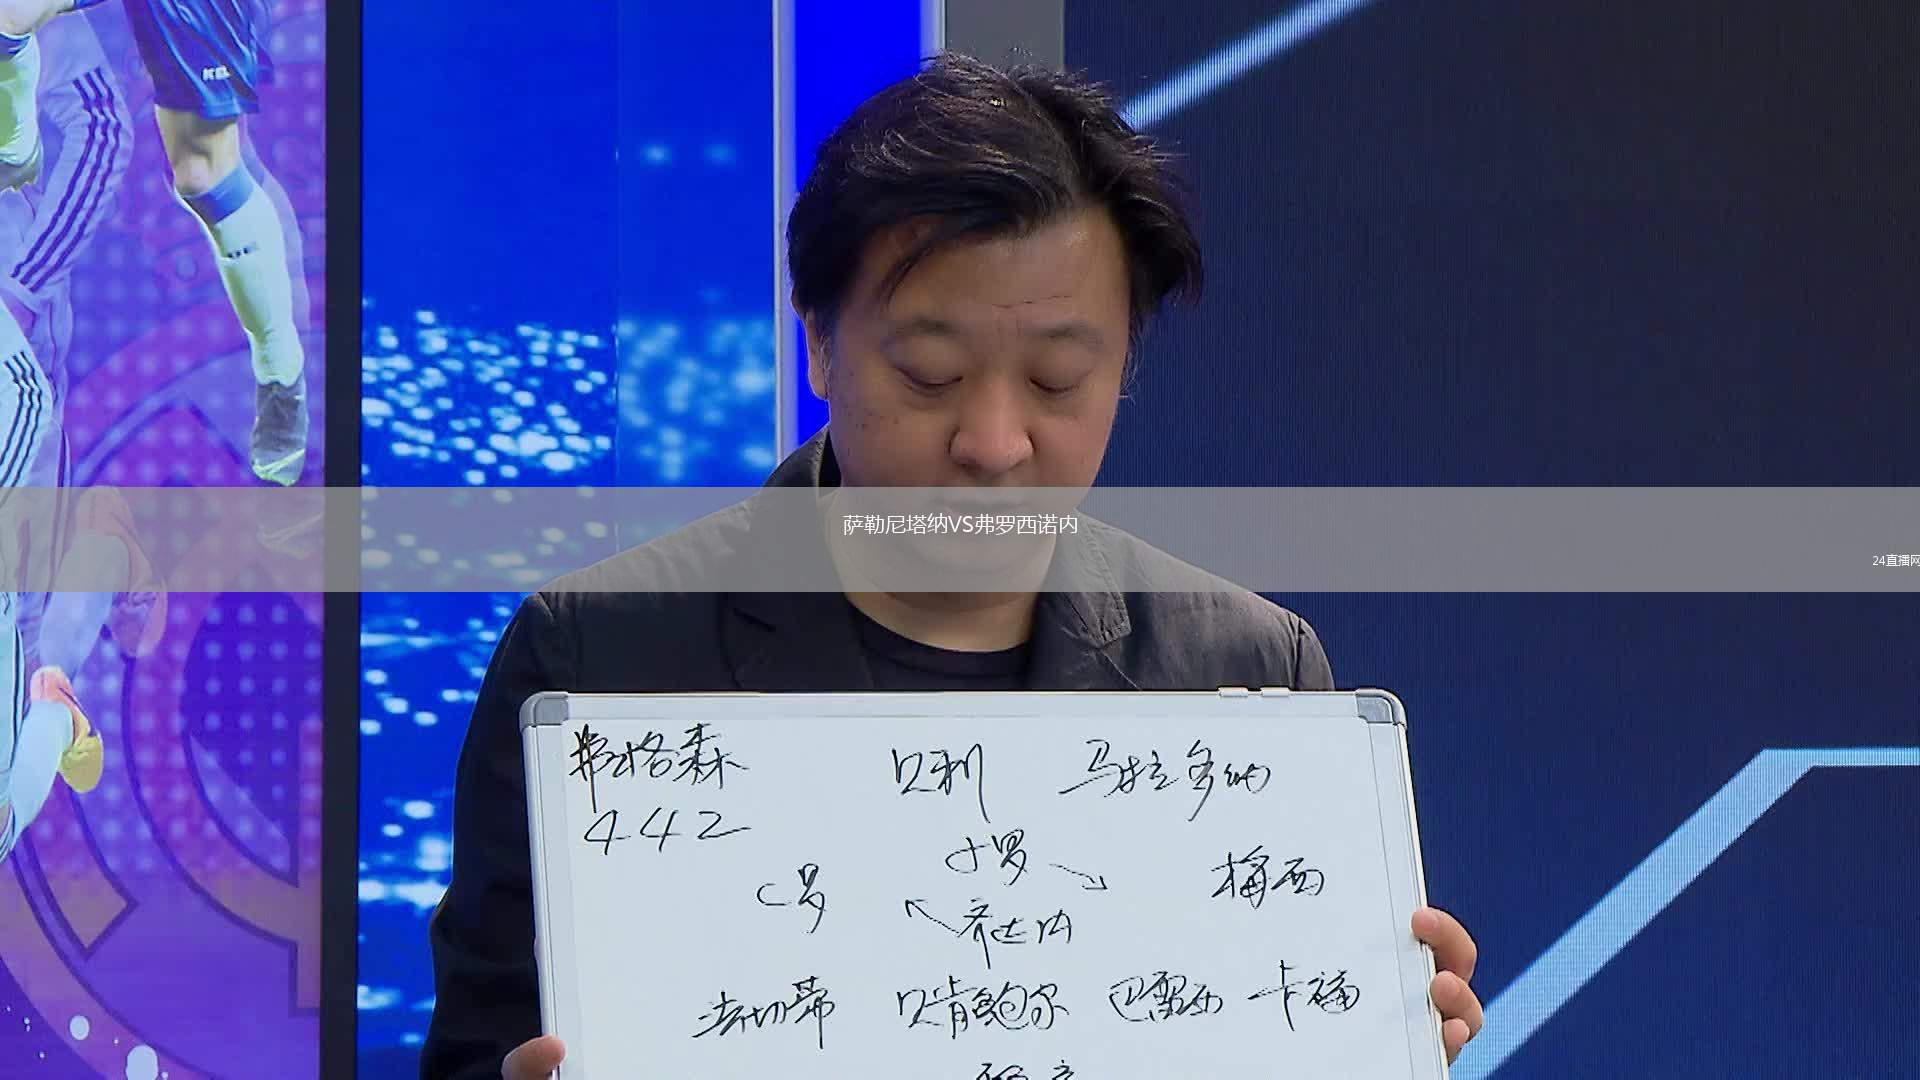 萨勒尼塔纳VS弗罗西诺内
24直播网
弗格森 贝利 马拉多纳
442
小罗
C罗 梅西
齐达内
法切蒂 贝肯鲍尔 巴雷西 卡福